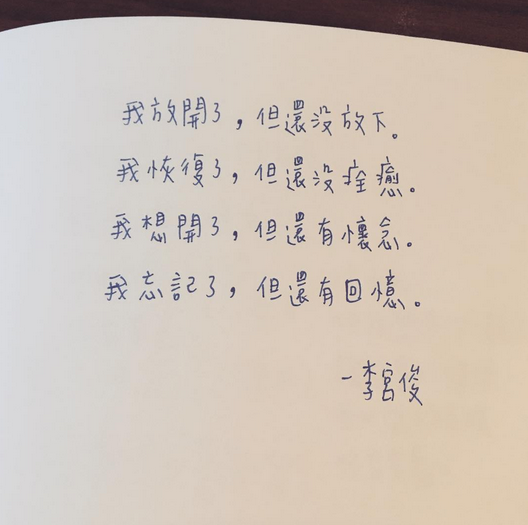 我放開了，但還沒放下。
我恢復了，但還沒痊癒。
我想開了，但還有懷念。
我忘記了，但還有回憶。
-李宮俊